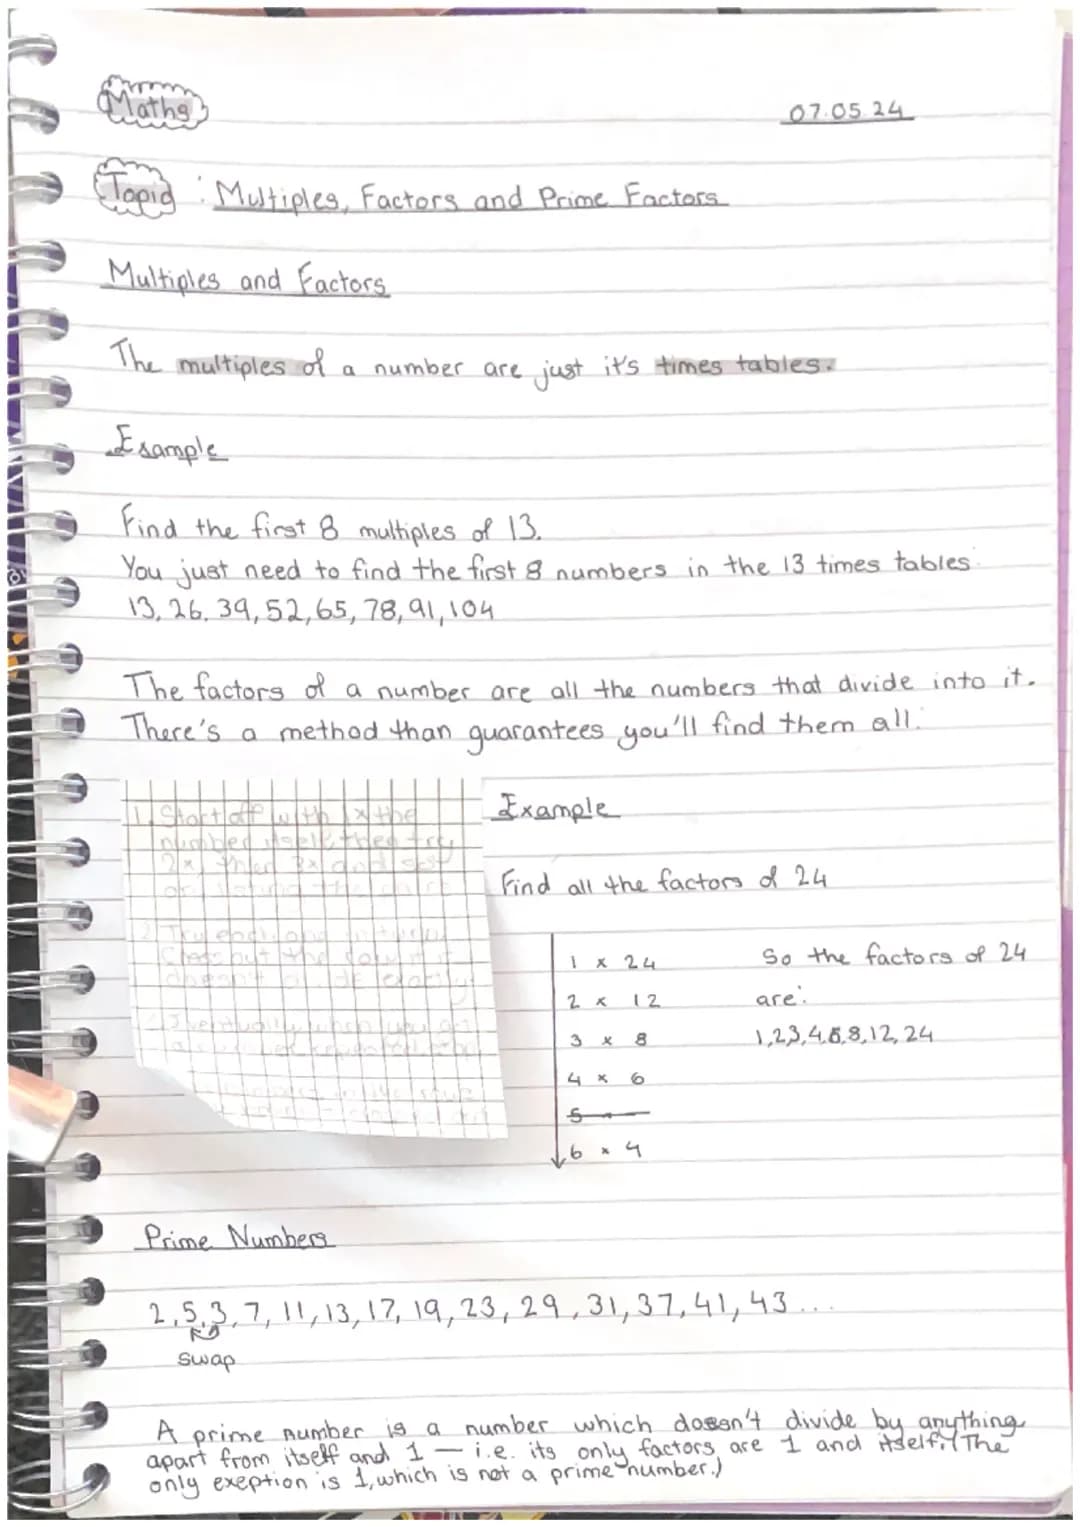 Maths
07.05.24
Topic : Multiples, Factors and Prime Factors
Multiples and Factors
The multiples of a number are just it's times tables.
Example
Find the first 8 multiples of 13.
You just need to find the first 8 numbers in the 13 times tables.
13, 26, 39, 52, 65, 78, 91, 104
The factors of a number are all the numbers that divide into it.
There's a method than guarantees you'll find them all.
1. Start off with 1x the
number itself, then try
2x, then 3x and so
Example
Find all the factors of 24
1 x 24
2 x 12
3 x 8
4 x 6
5 -
6 x 4
So the factors of 24
are:
1,2,3,4,6,8,12,24
Prime Numbers
2,5,3,7,11,13,17,19,23,29,31,37,41,43...
swap
A prime number is a number which doesn't divide by anything
apart from itself and 1 — i.e. its only factors are 1 and itself. (The
only exeption is 1, which is not a prime number.)